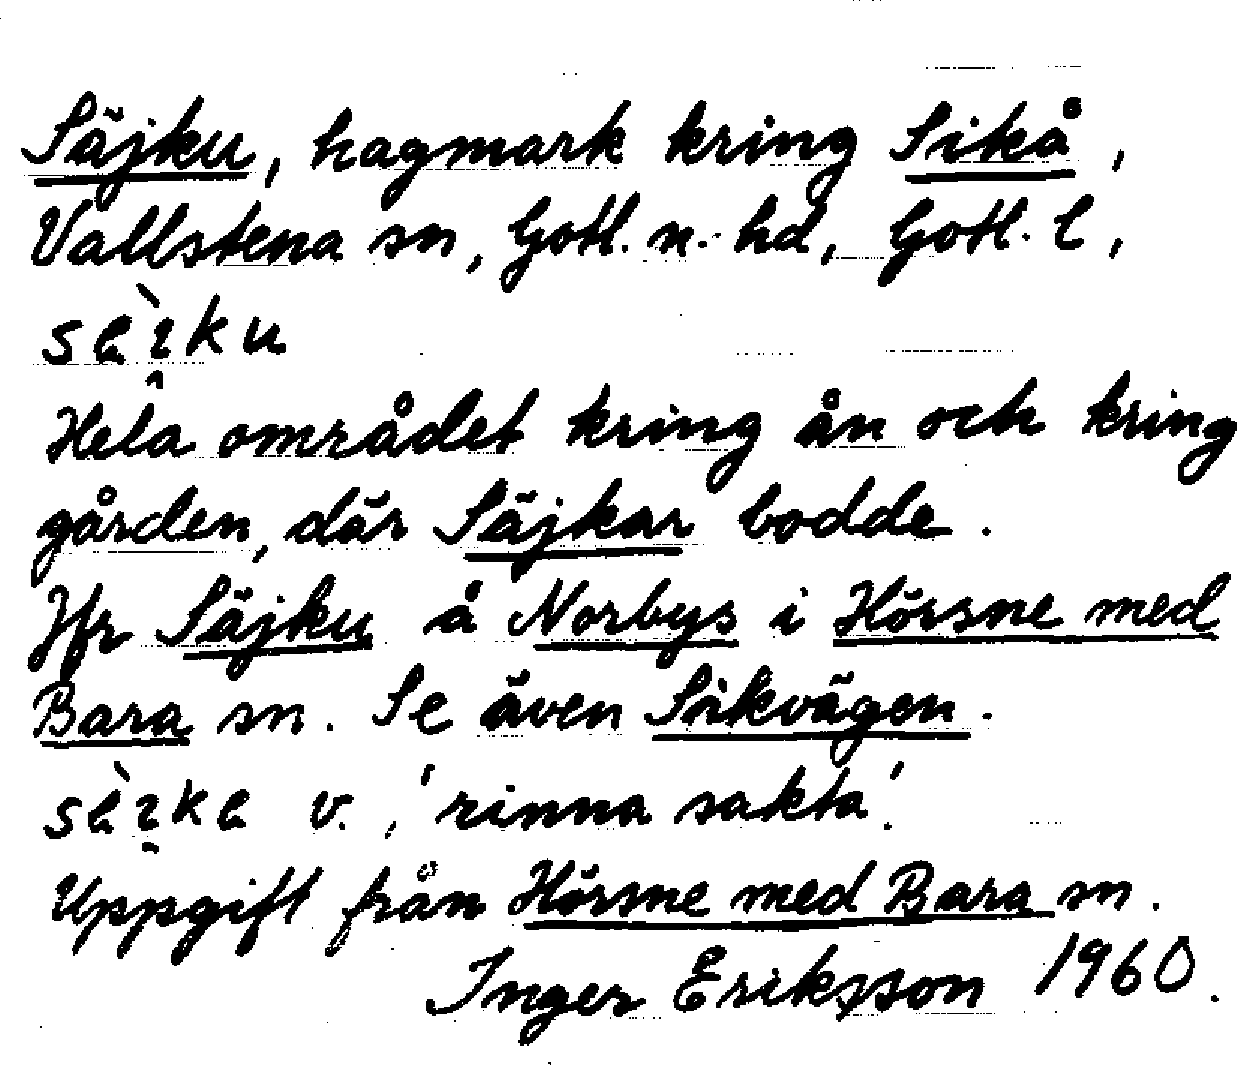 Säjku, hagmark kring Sikå,
Vallstena sn, Gotl. n. hd, Gotl. l,
Hela området kring ån och kring
gården, där Säjkar bodde.
Jfr Säjku å Norbys i Hörsne med
Bara sn. Se även Sikvägen.
v., 'rinna sakta'.
Uppgift från Hörsne med Bara sn.
Inger Eriksson 1960.